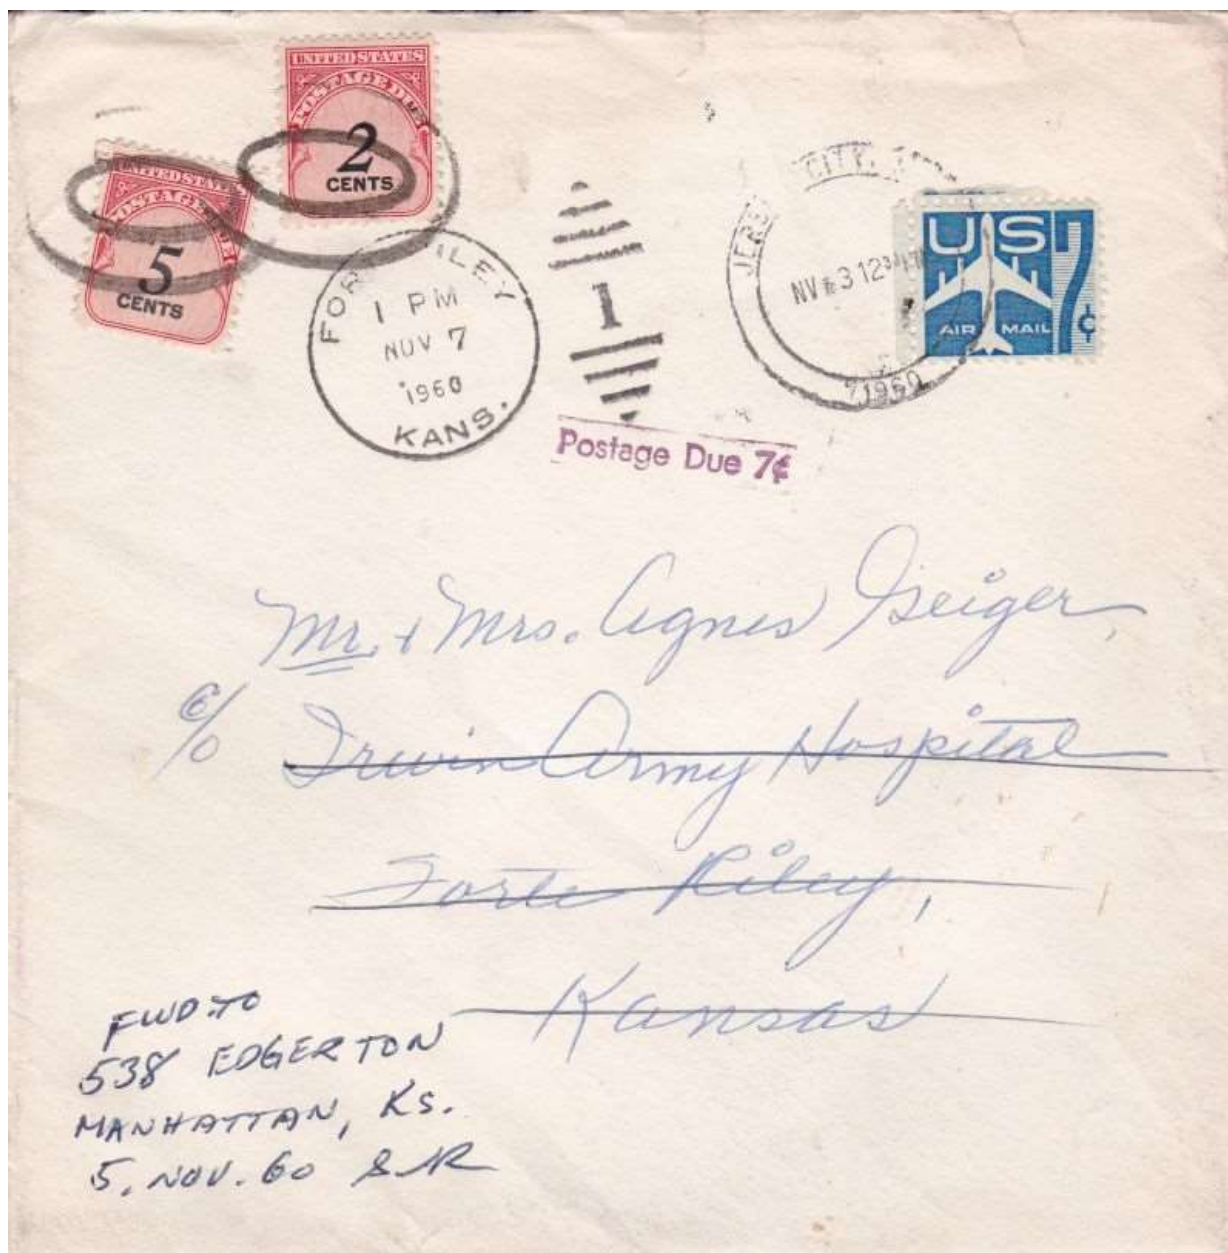 UNITED STATES
POSTAGE DUE
2
CENTS
UNITED STATES
POSTAGE DUE
5
CENTS
FORT RILEY
1 PM
NOV 7
1960
KANS.
1
JERSEY CITY,
NV 3 12
1960
US 7¢
AIR MAIL
Postage Due 7¢
Mr. + Mrs. Agnes Geiger,
c/o Irwin Army Hospital
Forte Riley,
Kansas
FWD. TO
538 EDGERTON
MANHATTAN, KS.
5. NOV. 60